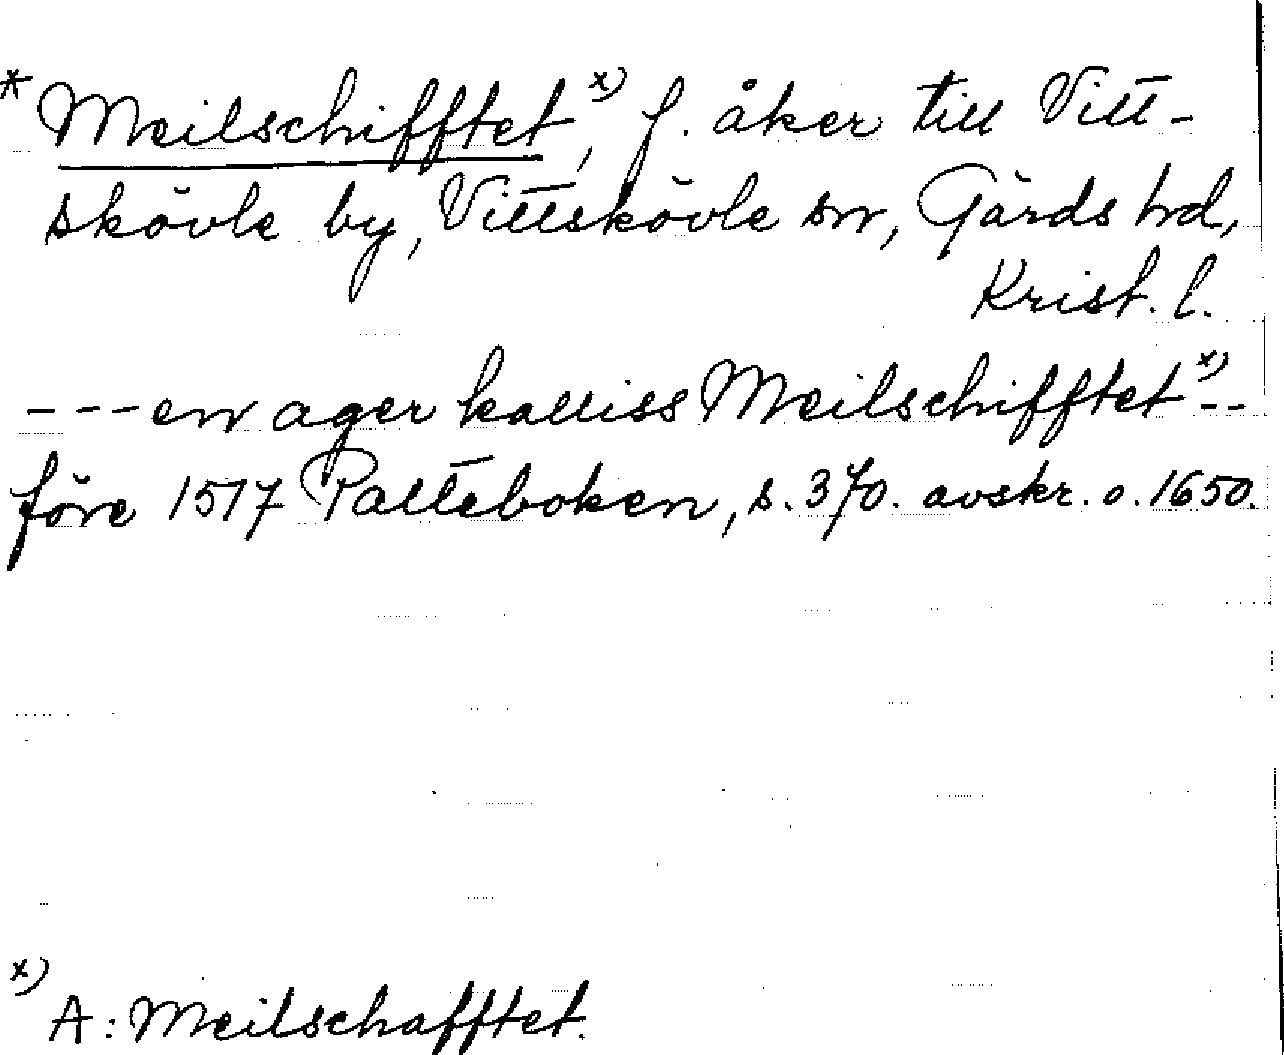 * Meilschifftet,ˣ⁾ f. åker till Vitt-
skövle by, Vittskövle sn, Gärds hd,
Krist. l.
--- en ager kalliss Meilschifftetˣ⁾--
före 1517 Palteboken, s. 370. avskr. o. 1650.
x)
A: Meilschafftet.